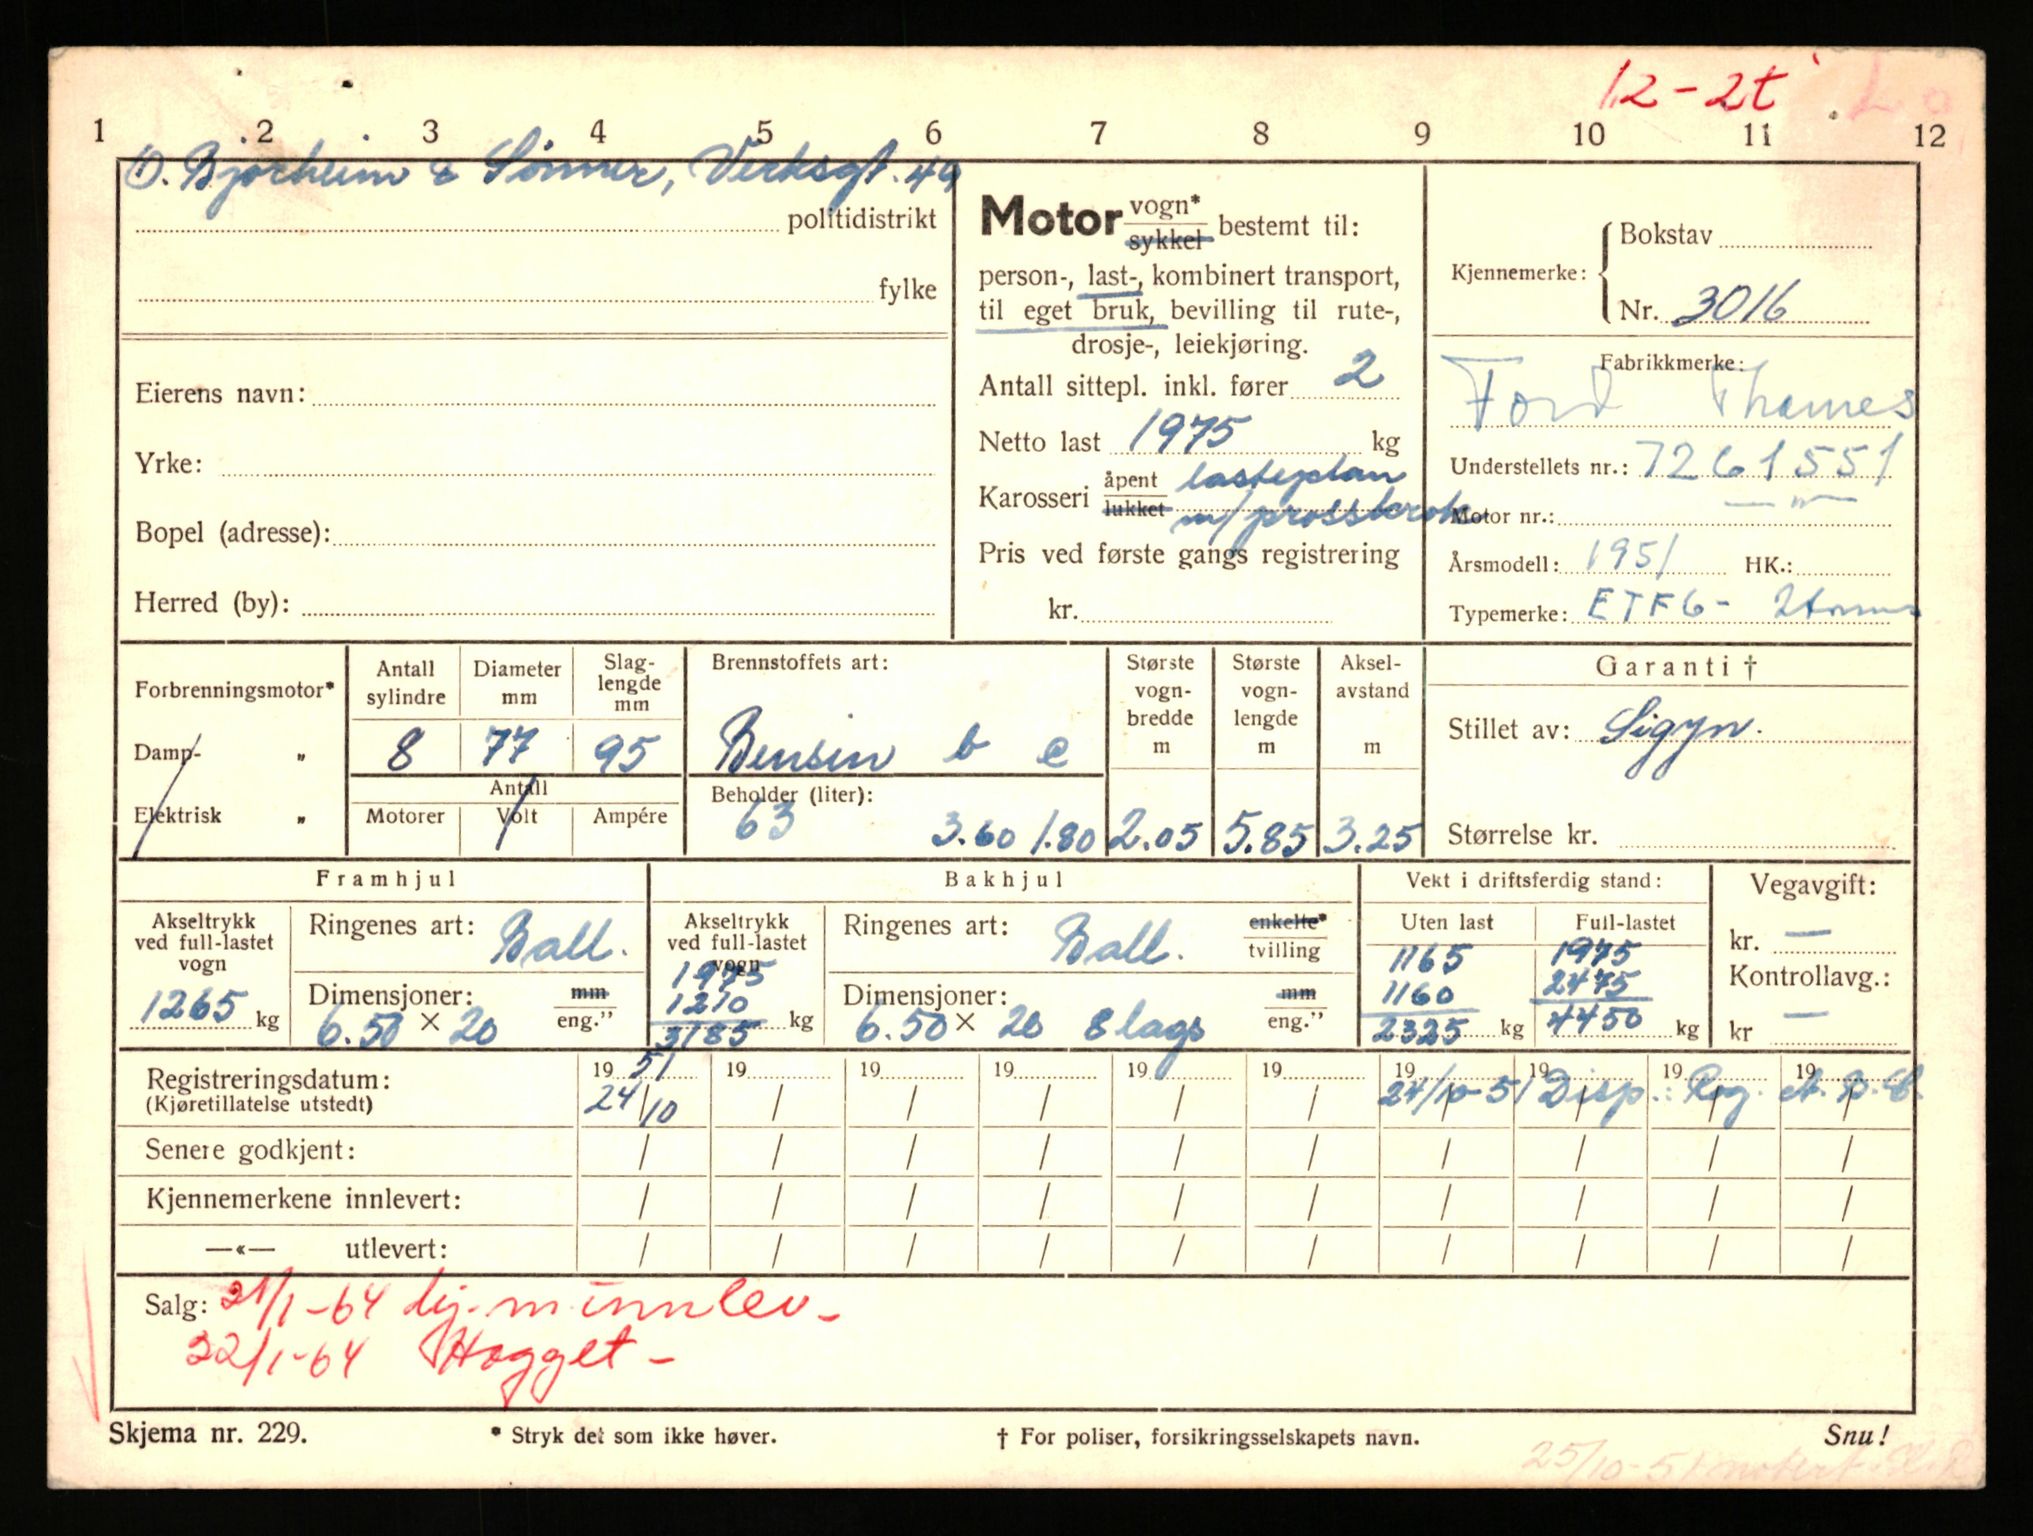 12 - 2t
1 2 3 4 5 6 7 8 9 10 11 12
O. Bjorheim & Sønner, Verksgt. 49
politidistrikt
fylke
Eierens navn:
Yrke:
Bopel (adresse):
Herred (by):
Motor vogn* sykkel bestemt til:
person-, last-, kombinert transport,
til eget bruk, bevilling til rute-,
drosje-, leiekjøring.
Antall sittepl. inkl. fører 2
Netto last 1975 kg
Karosseri åpent lukket lasteplan
m/
Pris ved første gangs registrering
kr.
Kjennemerke: Bokstav
Nr. 3016
Fabrikkmerke:
Ford Thames
Understellets nr.: 7261551
Motor nr.: — " —
Årsmodell: 1951 HK.:
Typemerke: ETF6 -
Forbrenningsmotor*
Damp- „
Elektrisk „
Antall sylindre
8
Diameter mm
77
Slag-lengde mm
95
Antall
Motorer Volt Ampére
Brennstoffets art:
Bensin b e
Beholder (liter):
63 3.60 1.80
Største vogn-bredde m
2.05
Største vogn-lengde m
5.85
Aksel-avstand m
3.25
Garanti †
Stillet av: Sigyn.
Størrelse kr.
Framhjul
Akseltrykk ved full-lastet vogn
1265 kg
Ringenes art: Ball.
Dimensjoner: mm eng.”
6.50 × 20
Bakhjul
Akseltrykk ved full-lastet vogn
1975
1210
3185 kg
Ringenes art: Ball. enkelte* tvilling
Dimensjoner: mm eng.”
6.50 × 20 8 lags
Vekt i driftsferdig stand:
Uten last Full-lastet
1165 1975
1160 2475
2325 kg 4450 kg
Vegavgift:
kr. —
Kontrollavg.:
kr —
Registreringsdatum: 19 51 19 19 19 19 19 19 19 19 19
(Kjøretillatelse utstedt) 24/10 / / / / / 24/10-51 Disp.: Rog. A. B. C.
Senere godkjent: / / / / / / / / / /
Kjennemerkene innlevert: / / / / / / / / / /
—«— utlevert: / / / / / / / / / /
Salg: 21/1-64 kj.m. innlev -
22/1-64 Hogget -
Skjema nr. 229. * Stryk det som ikke høver. † For poliser, forsikringsselskapets navn. Snu!
25/10-51 notert